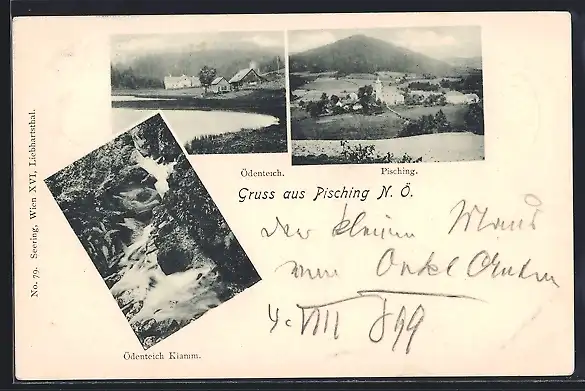 Ödenteich.
Pisching.
Gruss aus Pisching N. Ö.
der kleinen
Onkel
4. VIII 899
Ödenteich Klamm.
No. 79. Seering, Wien XVI, Liebhartsthal.